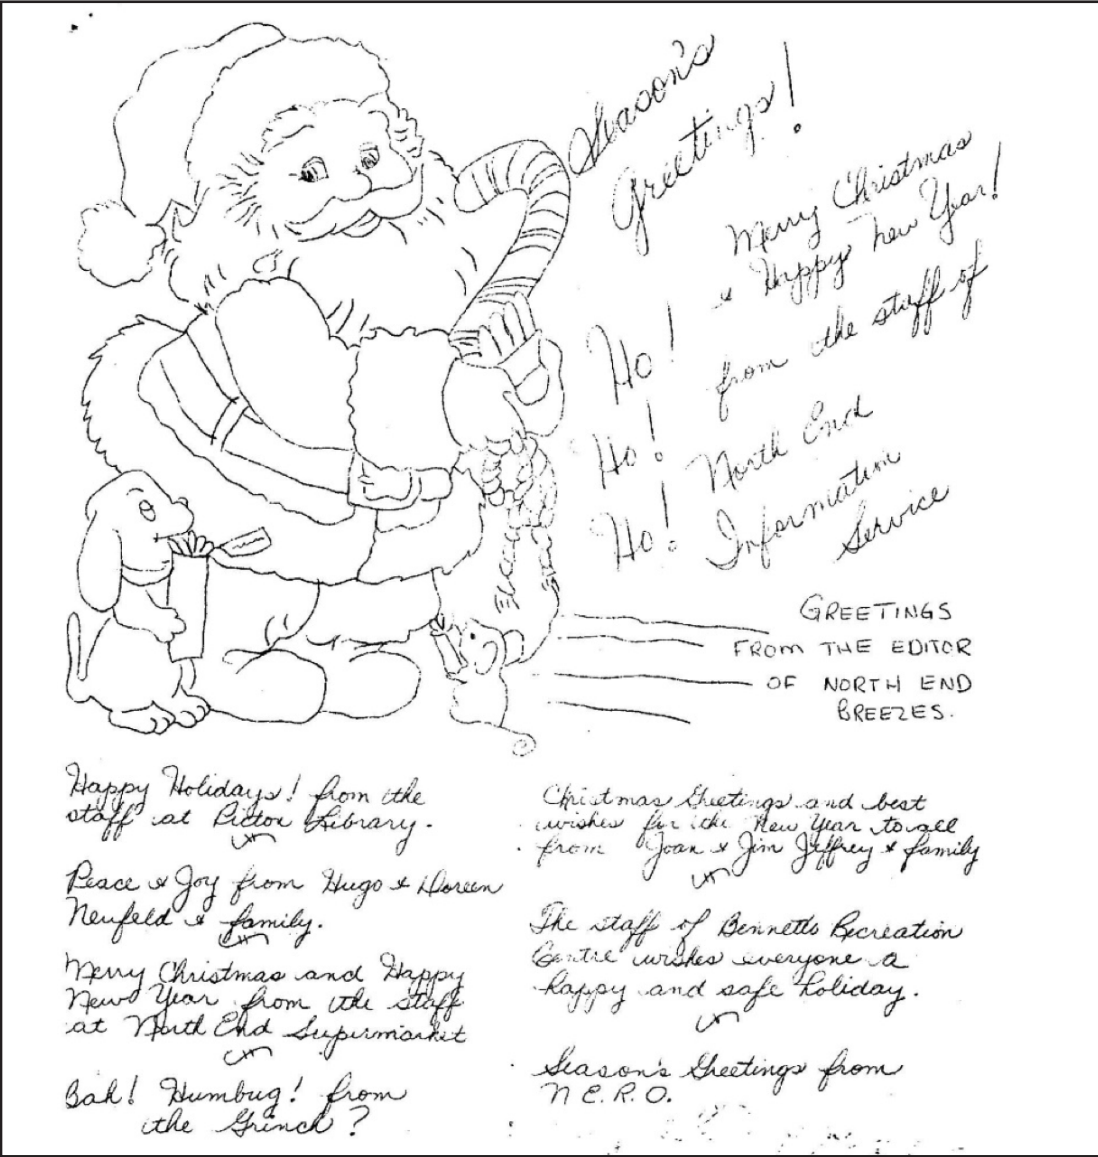 Season's
Greetings!
Merry Christmas
& Happy New Year!
from the staff of
North End
Information
Service
Ho!
Ho!
Ho!
GREETINGS
FROM THE EDITOR
OF NORTH END
BREEZES.
Happy Holidays! from the
staff at Picton Library.
Peace & Joy from Hugo & Doreen
Neufeld & family.
Merry Christmas and Happy
New Year from the staff
at North End Supermarket
Bah! Humbug! from
the Grinch?
Christmas Greetings and best
wishes for the New Year to all
from Joan & Jim Jeffrey & family
The staff of Bennetto Recreation
Centre wishes everyone a
happy and safe holiday.
Season's Greetings from
N.E.R.O.